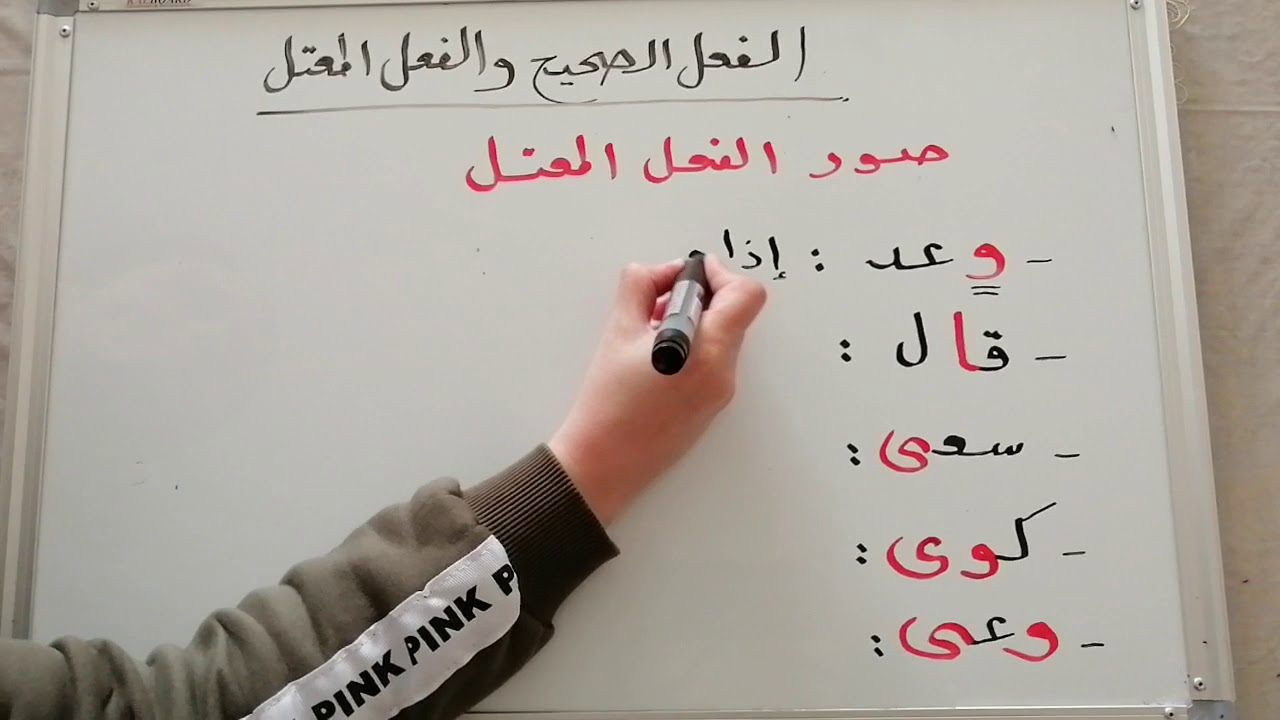 الفعل الصحيح والفعل المعتل
صور الفعل المعتل
- وعد : إذا
- قال :
- سعى :
- كوى :
- وعى :
PINK PINK P